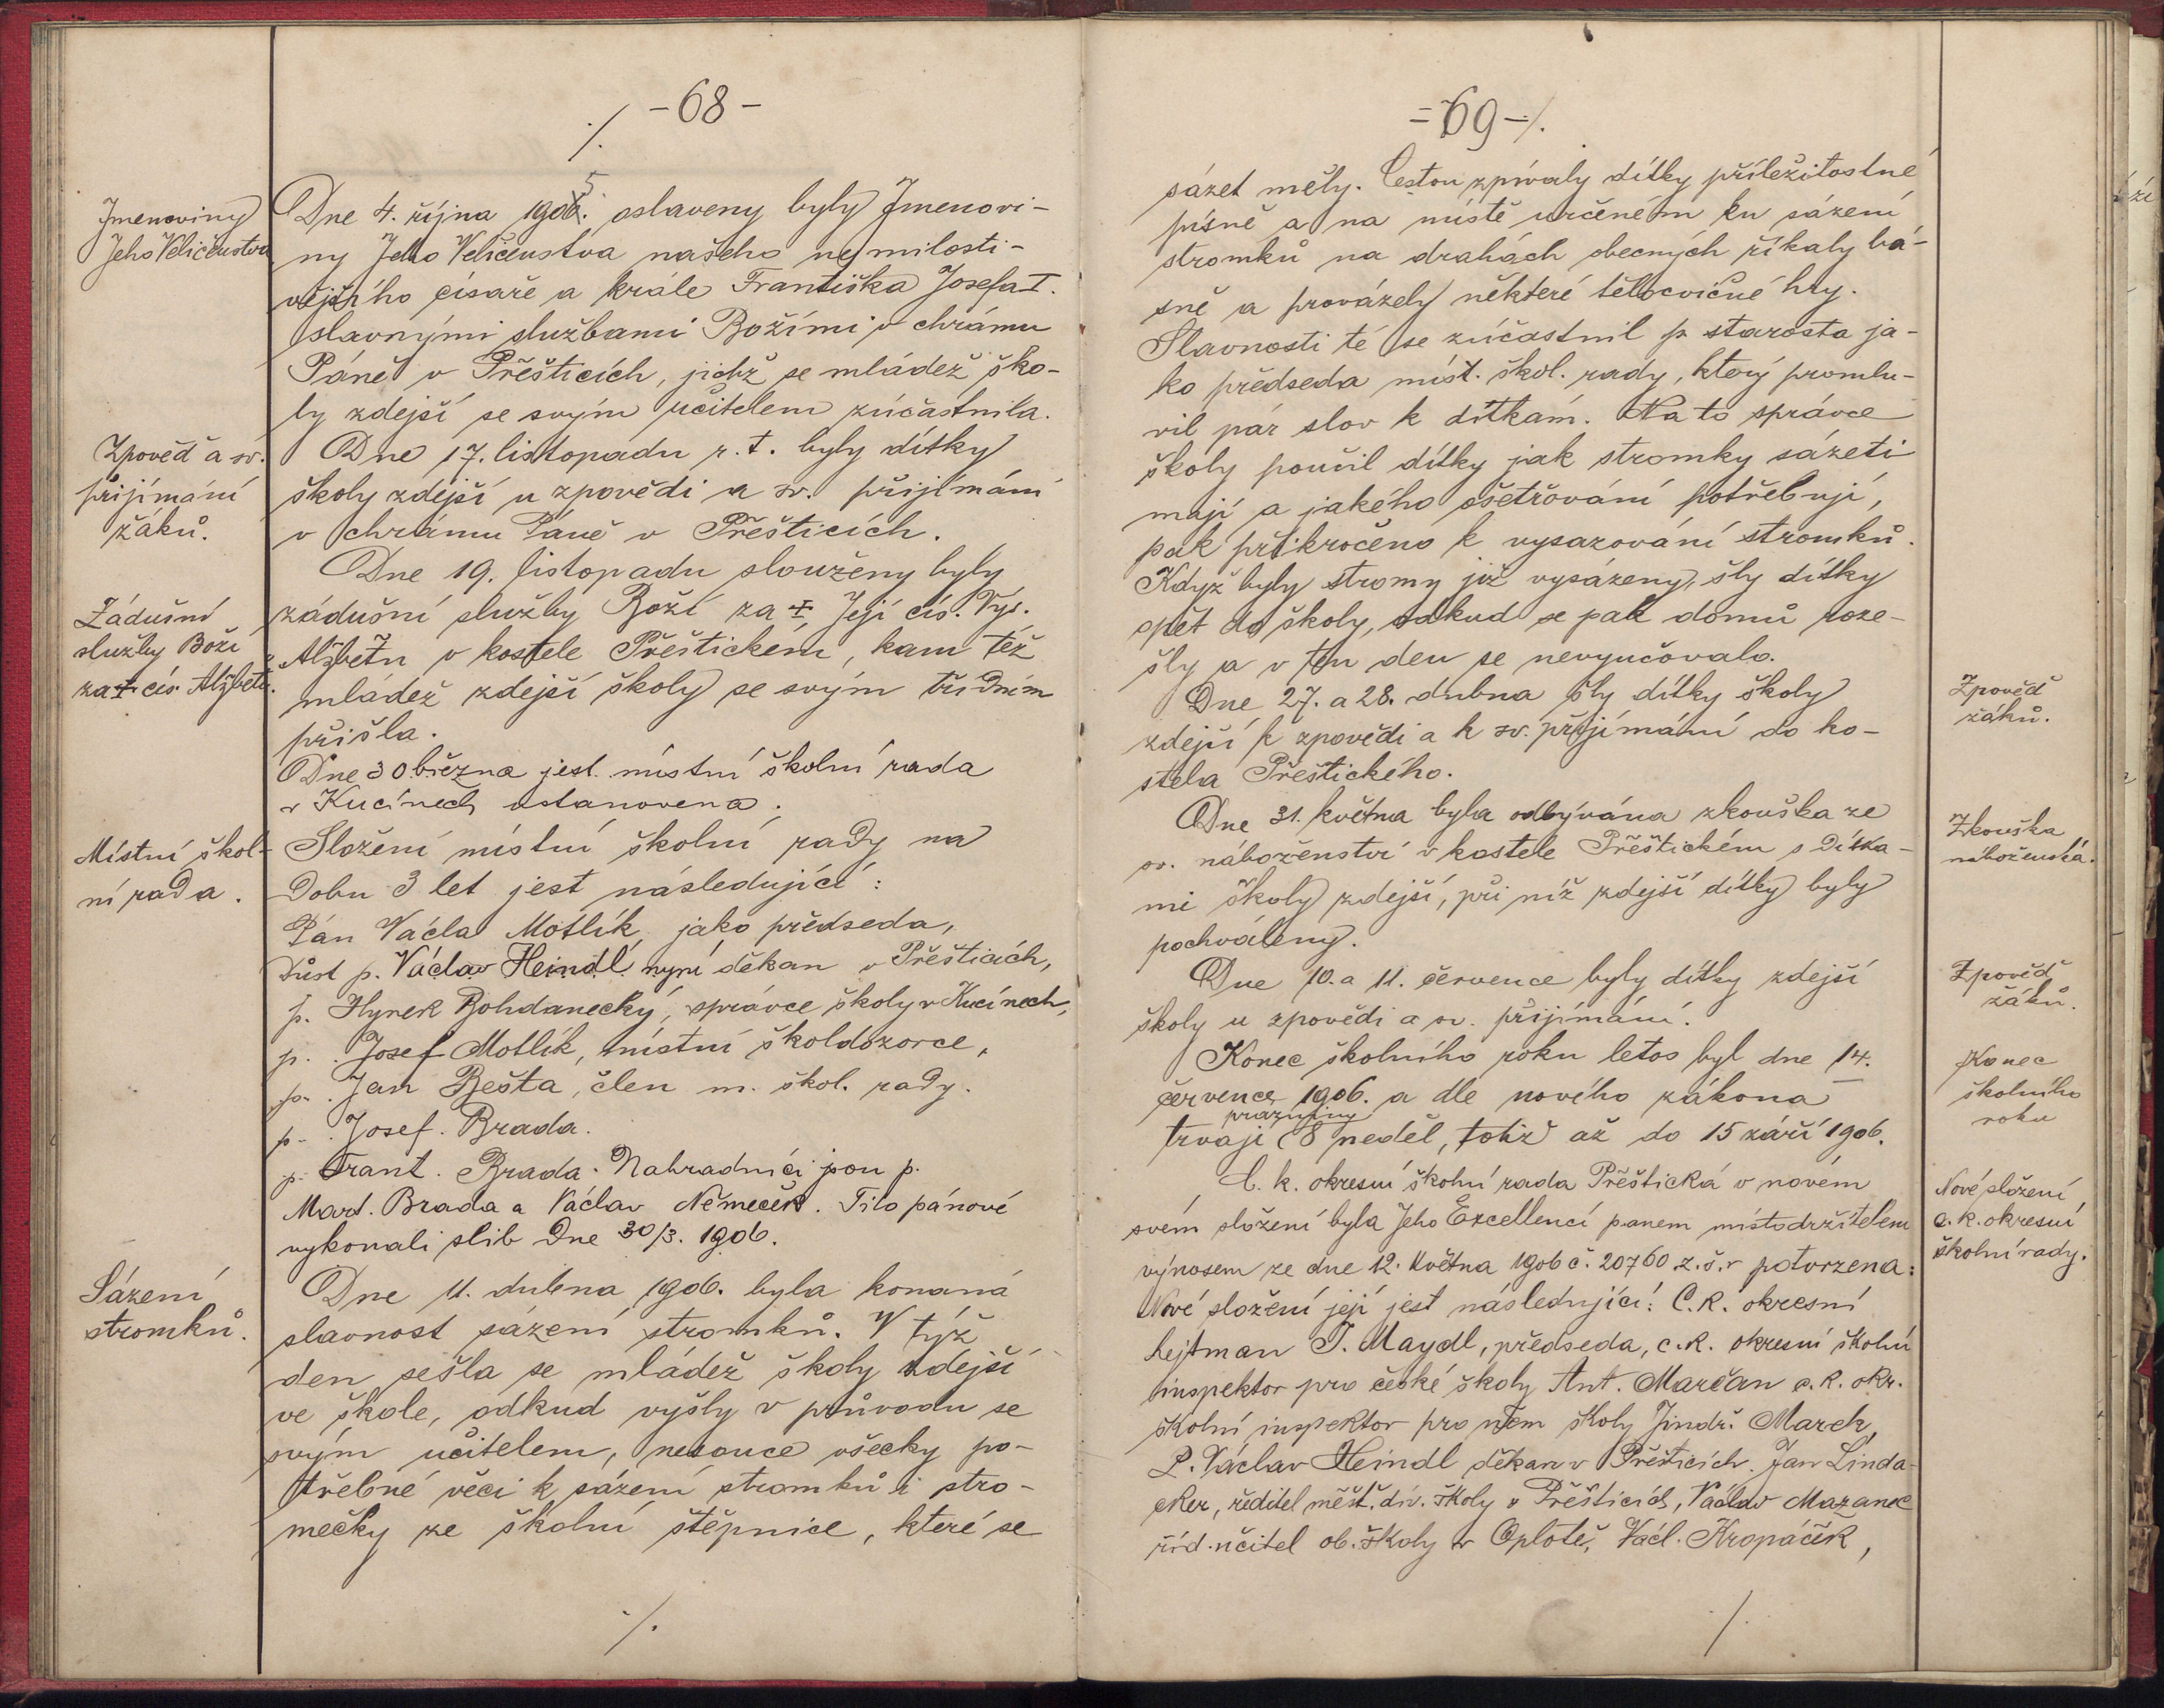 -68-
./.
Jmenoviny
Jeho Veličenstva
Dne 4. října 1905. oslaveny byly Jmenovi-
ny Jeho Veličenstva našeho nejmilosti-
vějšího císaře a krále Františka Josefa I.
slavnými službami Božími v chrámu
Páně v Přešticích, jichž se mládež ško-
ly zdejší se svým učitelem zúčastnila.
Zpověď a sv.
přijímání
žáků.
Dne 17. listopadu r. t. byly dítky
školy zdejší u zpovědi a sv. přijímání
v chrámu Páně v Přešticích.
Zádušní
služby Boží
za † cís. Alžbětu.
Dne 19. listopadu slouženy byly
zádušní služby Boží za † Její cís. Vys.
Alžbětu v kostele Přeštickém, kam též
mládež zdejší školy se svým třídním
přišla.
Dne 30 března jest místní školní rada
v Kucínech ustanovena.
Místní škol-
ní rada.
Složení místní školní rady na
dobu 3 let jest následující:
Pán Václav Motlík jako předseda,
Důst p. Václav Heindl nyní děkan v Přešticích,
p. Hynek Bohdanecký, správce školy v Kucínech,
p. Josef Motlík, místní školdozorce,
p. Jan Bešta, člen m. škol. rady.
p. Josef. Brada.
p. Frant. Brada. Nahradníci jsou p.
Mart. Brada a Václav Němeček. Tito pánové
vykonali slib dne 30/3. 1906.
Sázení
stromků.
Dne 11. dubna 1906. byla konaná
slavnost sázení stromků. V týž
den sešla se mládež školy zdejší
ve škole, odkud vyšly v průvodu se
svým učitelem, nesouce všecky po-
třebné věci k sázení stromků i stro-
mečky ze školní štěpnice, které se
./.
-69-/.
sázet měly. Cestou zpívaly dítky příležitostné
písně a na místě určeném ku sázení
stromků na drahách obecných říkaly bá-
sně a provázely některé tělocvičné hry.
Slavnosti té se zúčastnil p. starosta ja-
ko předseda míst. škol. rady, který promlu-
vil pár slov k dítkám. Na to správce
školy poučil dítky jak stromky sázeti
mají a jakého ošetřování potřebují,
pak přikročeno k vysazování stromků.
Když byly stromy již vysázeny, šly dítky
opět do školy, odkud se pak domů roze-
šly a v ten den se nevyučovalo.
Zpověď
žáků.
Dne 27. a 28. dubna šly dítky školy
zdejší k zpovědi a k sv. přijímání do ko-
stela Přeštického.
Zkouška
náboženská.
Dne 31. května byla odbývána zkouška ze
sv. náboženství v kostele Přeštickém s dítka-
mi školy zdejší, při níž zdejší dítky byly
pochváleny.
Zpověď
žáků.
Dne 10. a 11. července byly dítky zdejší
školy u zpovědi a sv. přijímání.
Konec
školního
roku
Konec školního roku letos byl dne 14.
července 1906. a dle nového zákona
prázdniny
trvají 8 neděl, totiž až do 15 září 1906.
Nové složení
c. k. okresní
školní rady.
C. k. okresní školní rada Přeštická v novém
svém složení byla Jeho Excellencí panem místodržitelem
výnosem ze dne 12. května 1906 č. 20760 z. š. r potvrzena:
Nové složení její jest následující: C. k. okresní
hejtman T. Maydl, předseda, c. k. okresní školní
inspektor pro české školy Ant. Marčan c. k. okr.
školní inspektor pro něm školy Jindř. Marek,
P. Václav Heindl děkan v Přešticích. Jan Linda-
cker, ředitel měšť. dív. školy v Přešticích, Václav Mazanec
říd. učitel ob. školy v Oplotě, Václ. Kropáček,
/.